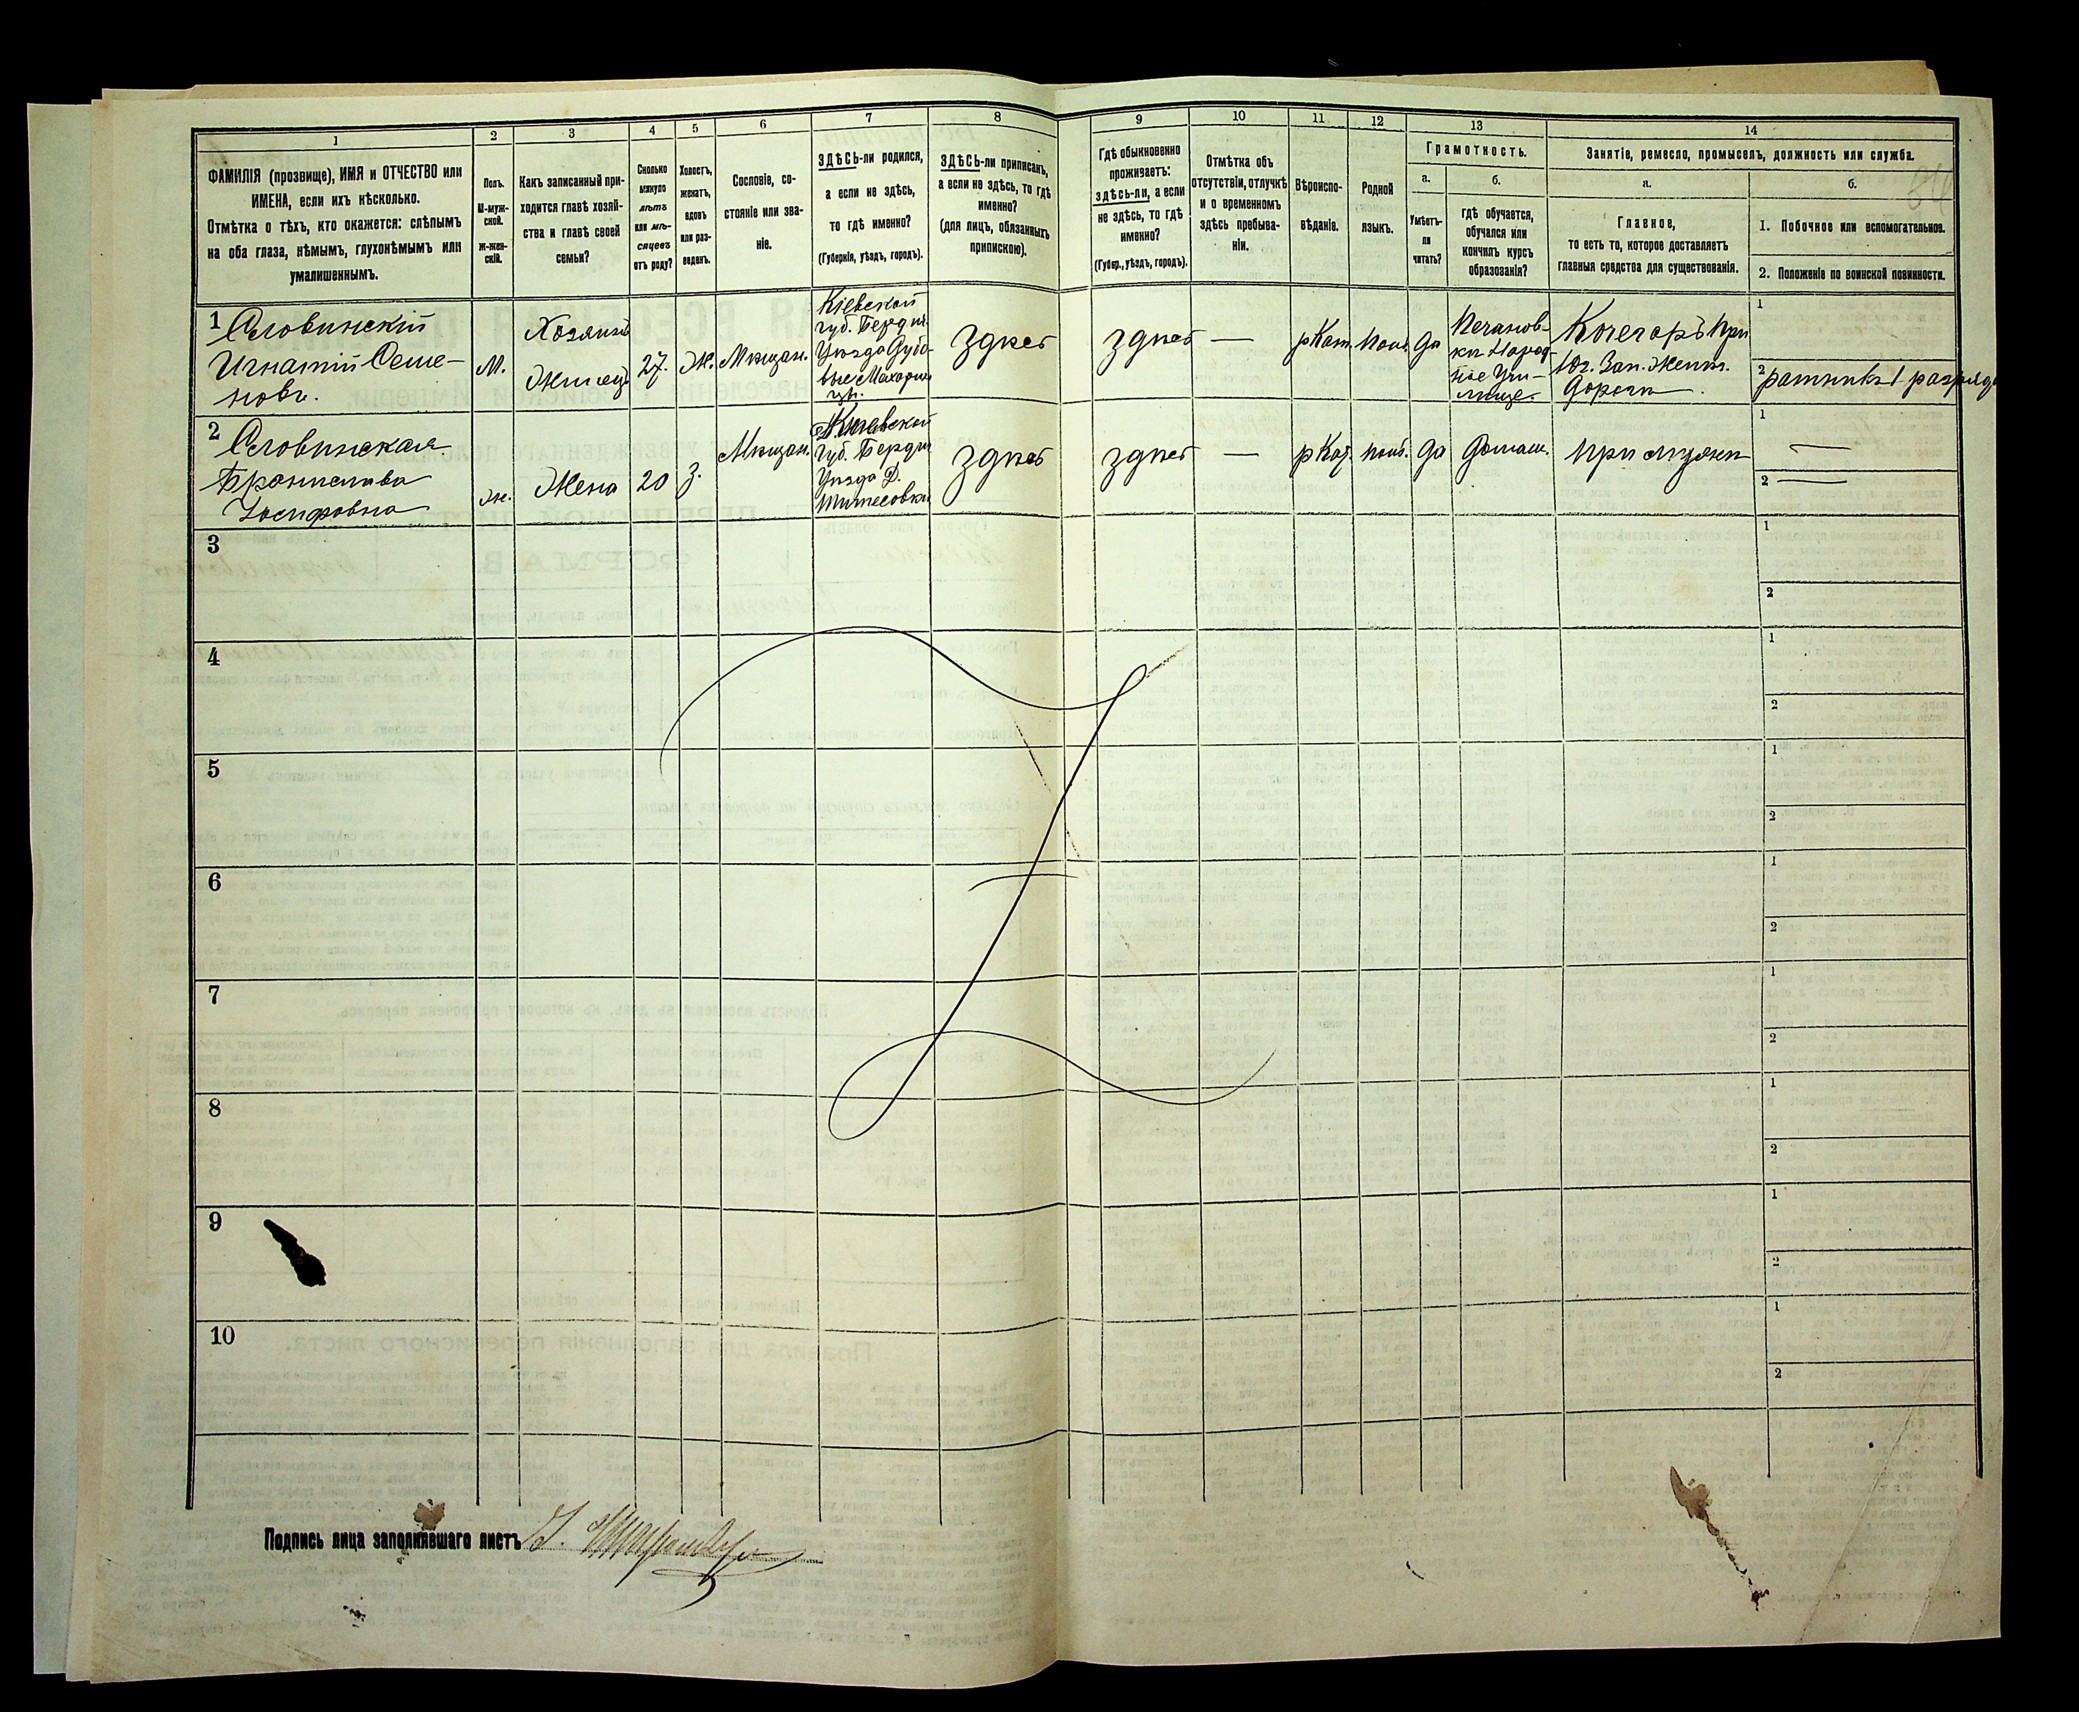 1
2
3
4
5
6
7
8
9
10
11
12
13
14
ФАМИЛІЯ (прозвище), ИМЯ и ОТЧЕСТВО или
ИМЕНА, если ихъ нѣсколько.
Отмѣтка о тѣхъ, кто окажется: слѣпымъ
на оба глаза, нѣмымъ, глухонѣмымъ или
умалишеннымъ.
Полъ.
М-муж-
ской.
ж-жен-
скій.
Какъ записанный при-
ходится главѣ хозяй-
ства и главѣ своей
семьи?
Сколько
минуло
лѣтъ
или мѣ-
сяцевъ
отъ роду?
Холостъ,
женатъ,
вдовъ
или раз-
веденъ.
Сословіе, со-
стояніе или зва-
ніе.
ЗДѢСЬ-ли родился,
а если не здѣсь,
то гдѣ именно?
(Губернія, уѣздъ, городъ).
ЗДѢСЬ-ли приписанъ,
а если не здѣсь, то гдѣ
именно?
(для лицъ, обязанныхъ
припискою).
Гдѣ обыкновенно
проживаетъ:
здѣсь-ли, а если
не здѣсь, то гдѣ
именно?
(Губер., уѣздъ, городъ).
Отмѣтка объ
отсутствіи, отлучкѣ
и о временномъ
здѣсь пребыва-
ніи.
Вѣроиспо-
вѣданіе.
Родной
языкъ.
Грамотность.
а.
Умѣетъ-
ли
читать?
б.
гдѣ обучается,
обучался или
кончилъ курсъ
образованія?
Занятіе, ремесло, промыселъ, должность или служба.
а.
Главное,
то есть то, которое доставляетъ
главныя средства для существованія.
б.
1. Побочное или вспомогательное.
2. Положеніе по воинской повинности.
1 Словинскій
Игнатій Семе-
новъ.
М.
Хозяинъ
Жилецъ
27.
Ж.
Мѣщан.
Кіевской
губ. Бердич.
Уѣзда Дубо-
вые Махарин
цы.
Здѣсь
здѣсь
—
рКат.
Поль.
Да
Печанов-
ки Народ-
ное Учи-
лище.
Кочегаръ При
Юг. Зап. Желѣз.
дороги.
1
2 ратникъ 1 разряда
2 Словинская
Бронислава
Іосифовна
ж.
Жена
20
З.
Мѣщан.
Кіевской
губ. Бердич
Уѣзда Д.
здѣсь
здѣсь
—
рКат.
Поль.
Да
Домаш.
При мужѣ
1 —
2 —
3
1
2
4
1
2
5
1
2
6
1
2
7
1
2
8
1
2
9
1
2
10
1
2
Подпись лица заполнявшаго листъ